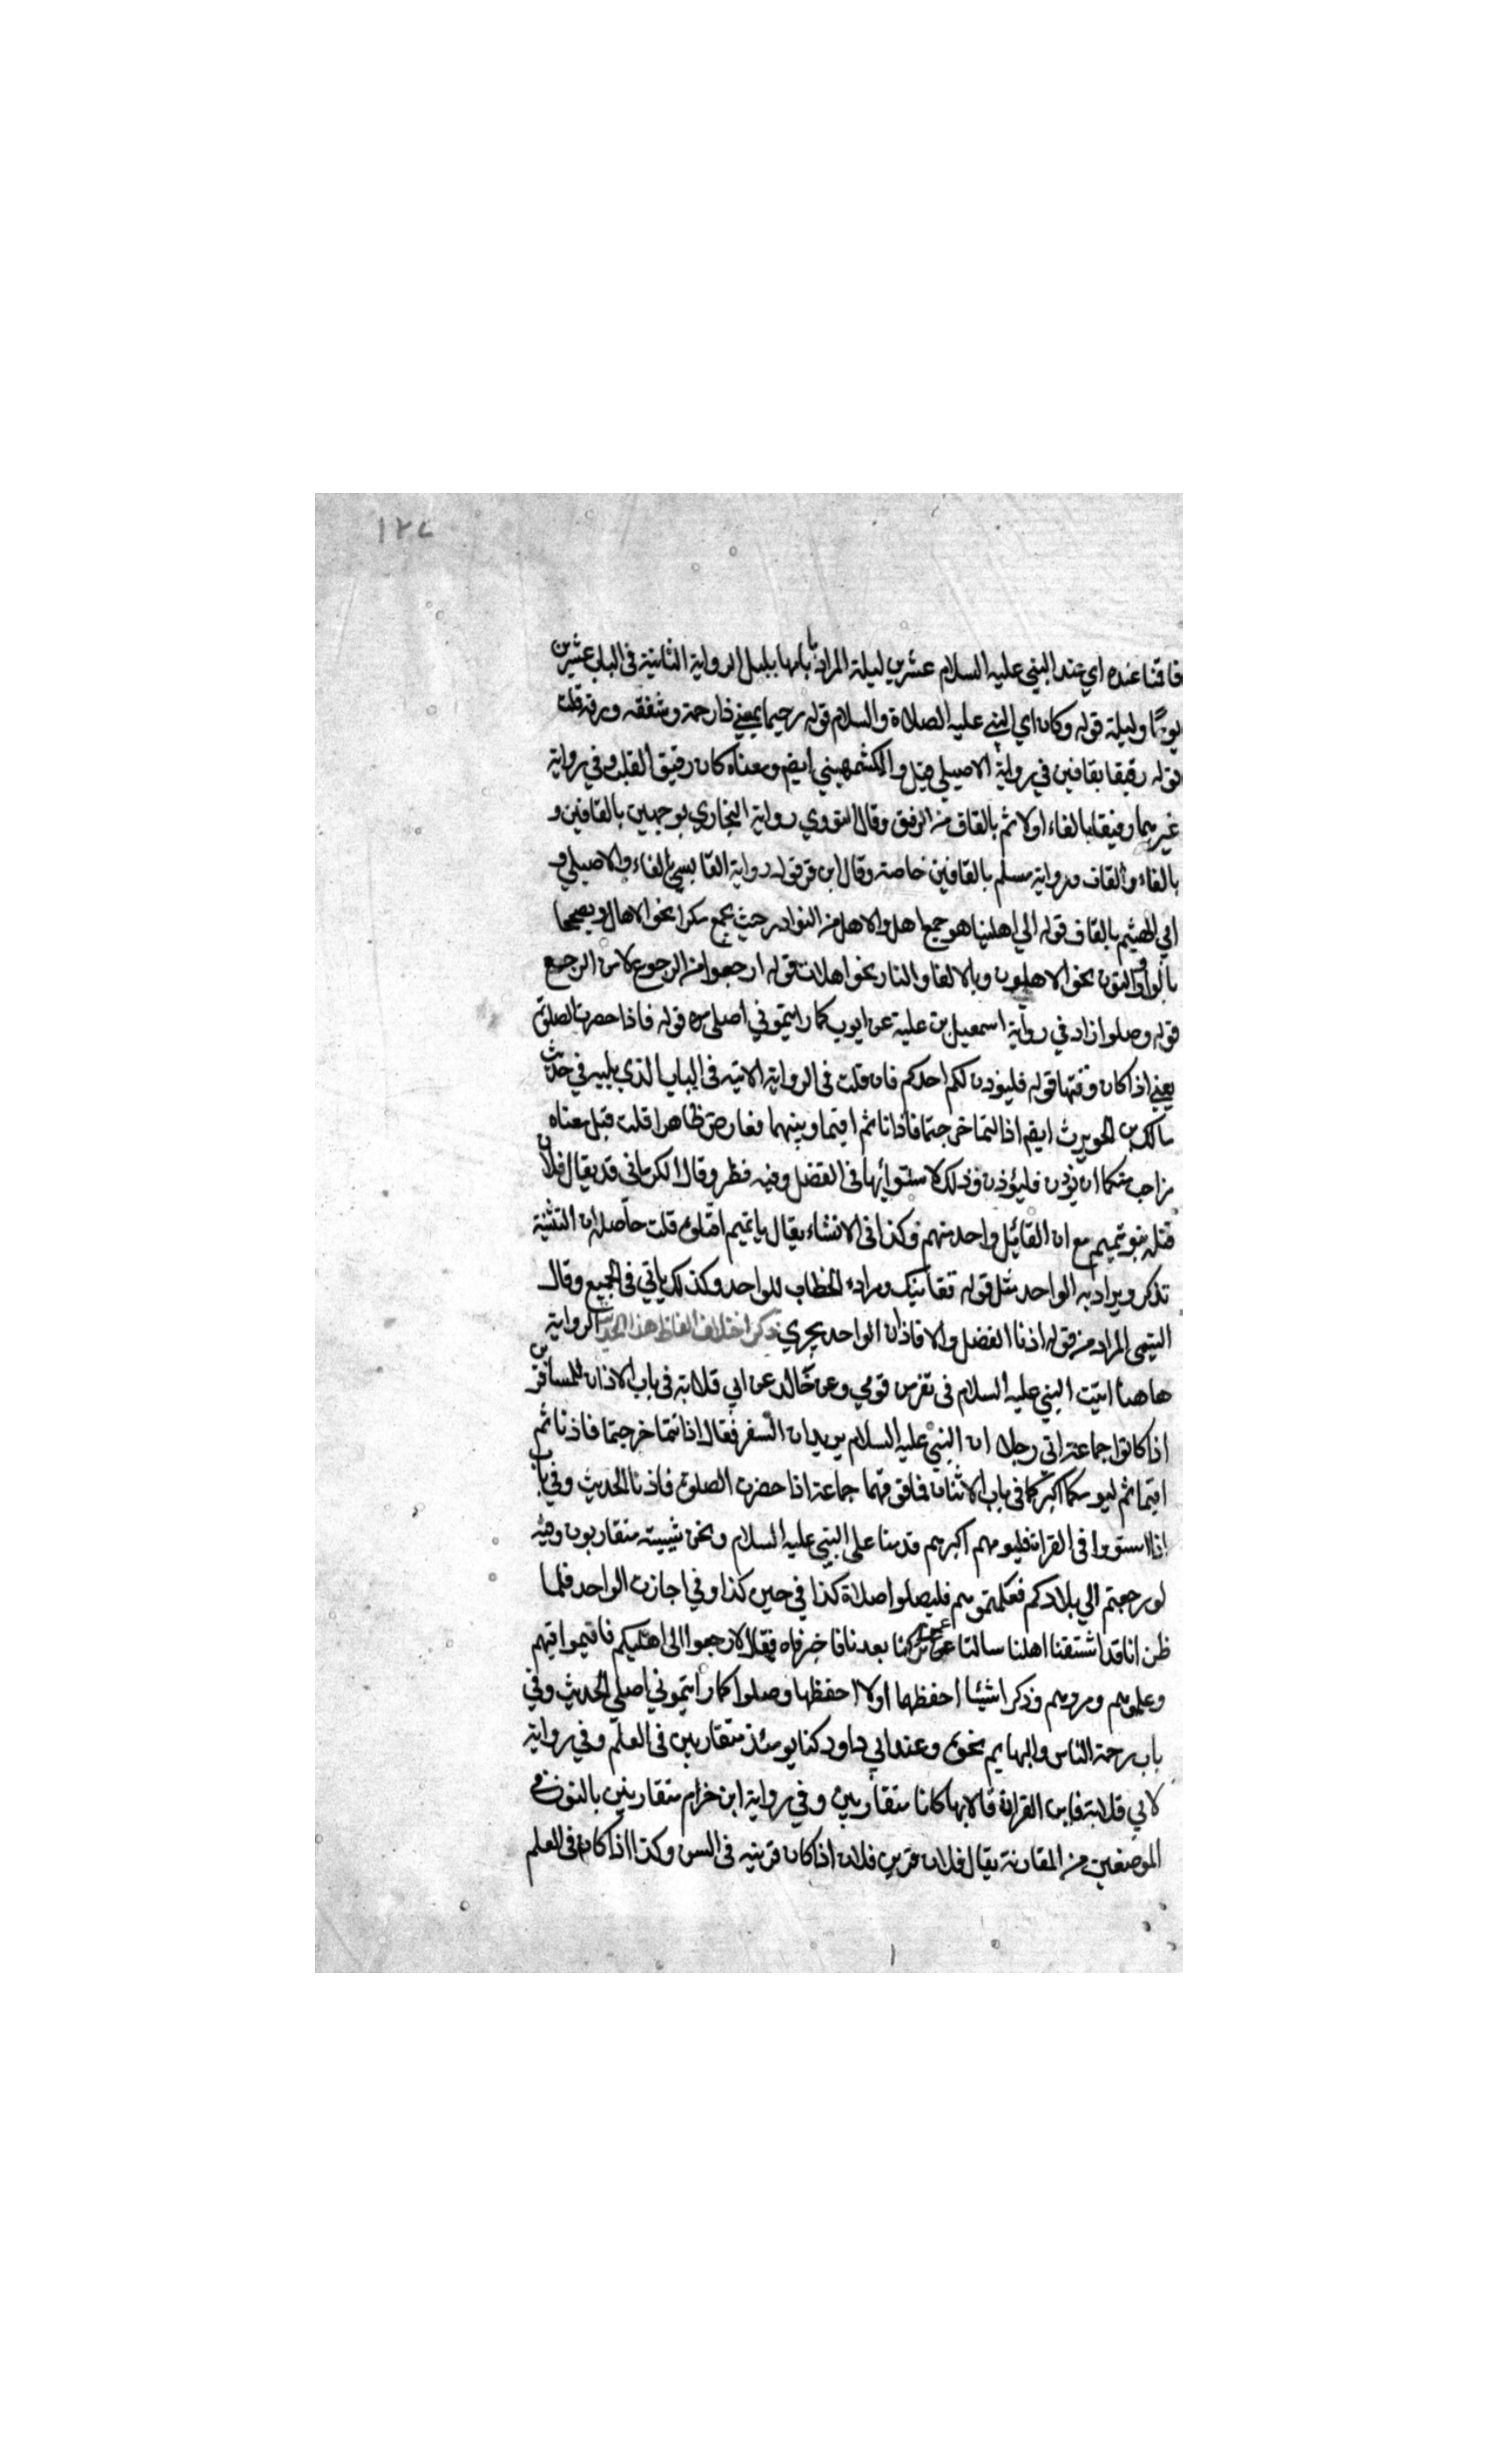 ١٢٧
فاقمنا عنده اي عند النبي عليه السلام عشرين ليلة المراد بايامها بدليل الرواية الثانية في الباب عشرين
يومًا وليلة قوله وكان اي النبي عليه الصلاة والسلام قوله رحيما بمعني ذا رحمة وشفقه ورقة قلت
قوله رقيقا بقافين في رواية الاصيلي قيل والكشمهيني ايضم ومعناه كان رقيق القلب وفي رواية
غيرهما رفيقا بالفاء اولا ثم بالقاف من الرفق وقال النووي رواية البخاري بوجهين بالقافين و
بالفاء والقاف ورواية مسلم بالقافين خاصة وقال ابن قرقوله رواية القابسي بالفاء والاصيلي و
ابي الهيثم بالقاف قوله الي اهلينا هو جمع اهل والاهل من النوادر حيث يجمع مكرا نحو الاهال ويصححا
بالواو والنون نحو الاهلون وبالالف والتا نحو اهلات قوله ارجعوا من الرجوع لا من الرجع
قوله وصلوا زاد في رواية اسمعيل بن علية عن ايوب كما رايتموني اصلي قوله فاذا حضرت الصلوة
يعني اذا كان وقتها قوله فليؤذن لكم احدكم فان قلت في الرواية الاتيه في الباب الذي يليه في حديث
مالك بن الحويرث ايضم اذا انتما خرجتما فاذنا ثم اقيما وبينهما تعارض ظاهرا قلت قيل معناه
من احب منكما ان يؤذن فليؤذن وذلك لاستوائهما في الفضل وفيه نظر وقال الكرماني قد يقال فلان
قتله بنو تميم مع ان القائل واحد منهم وكذا في الانشاء يقال يا تميم اقتلوه قلت حاصله ان التثنية
تذكر ويراد به الواحد مثل قوله قفا نبك ومراده الخطاب للواحد وكذلك ياتي في الجميع وقال
التيمي المراد من قوله اذنا الفضل والا فاذان الواحد يجزي ذكر اختلاف الفاظ هذا الحديث الرواية
هاهنا اتيت النبي عليه السلام في نفر من قومي وعن خالد عن ابي قلابة في باب الاذان للمسافرين
اذا كانوا جماعة اتي رجلان النبي عليه السلام يريدان السفر فقال اذا انتما خرجتما فاذنا ثم
اقيما ثم ليومكما اكبركما في باب الاثنان فما فوقهما جماعة اذا حضرت الصلوة فاذنا الحديث وفي باب
اذا استووا في القراة فليومهم اكبرهم قدمنا على النبي عليه السلام ونحن شيبته متقاربون وفيه
لو رجعتم الي بلادكم فعلمتموهم فليصلوا صلاة كذا في حين كذا وفي اجازت الواحد فلما
ظن انا قد اشتقنا اهلنا سالنا عمن تركنا بعدنا فاخبرناه فقال ارجعوا الى اهليكم فاقيموا فيهم
وعلموهم ومروهم وذكر اشيئا احفظها اولا احفظها وصلوا كما رايتموني اصلي الحديث وفي
باب رحمة الناس والبهايم نحوه وعند ابي داود كنا يومئذ متقاربين في العلم وفي رواية
لابي قلابة فاين القراة قال انهما كانا متقاربين وفي رواية ابن حزام متقارنين بالنون في
الموضعين من المقارنة يقال فلان قرين فلان اذا كان قرينه في السن وكذا اذا كان في العلم